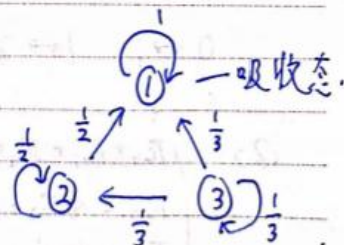 1
① — 吸收态.
1/2 1/3
1/2 ② ③ 1/3
1/3